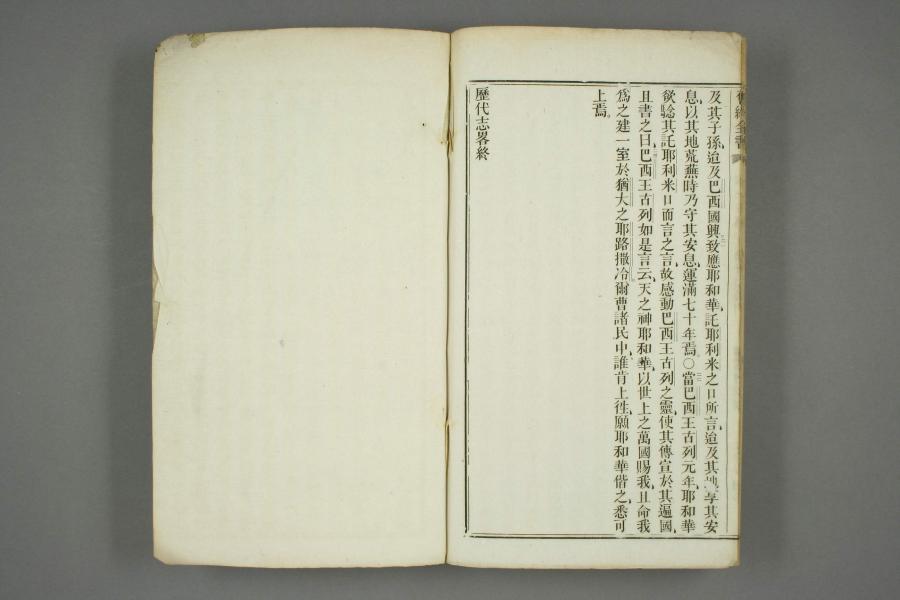 舊約全書
及其子孫、迨及巴西國興、致應耶和華託耶利米之口所言、迨及其地享其安
息、以其地荒蕪時、乃守其安息、運滿七十年焉。○當巴西王古列元年、耶和華
欲騐其託耶利米口而言之言、故感動巴西王古列之靈、使其傳宣於其遍國、
且書之曰、巴西王古列如是言云、天之神耶和華、以世上之萬國賜我、且命我
爲之建一室於猶大之耶路撒冷、爾曹諸民中、誰肯上徃、願耶和華偕之、悉可
上焉。
歷代志畧終